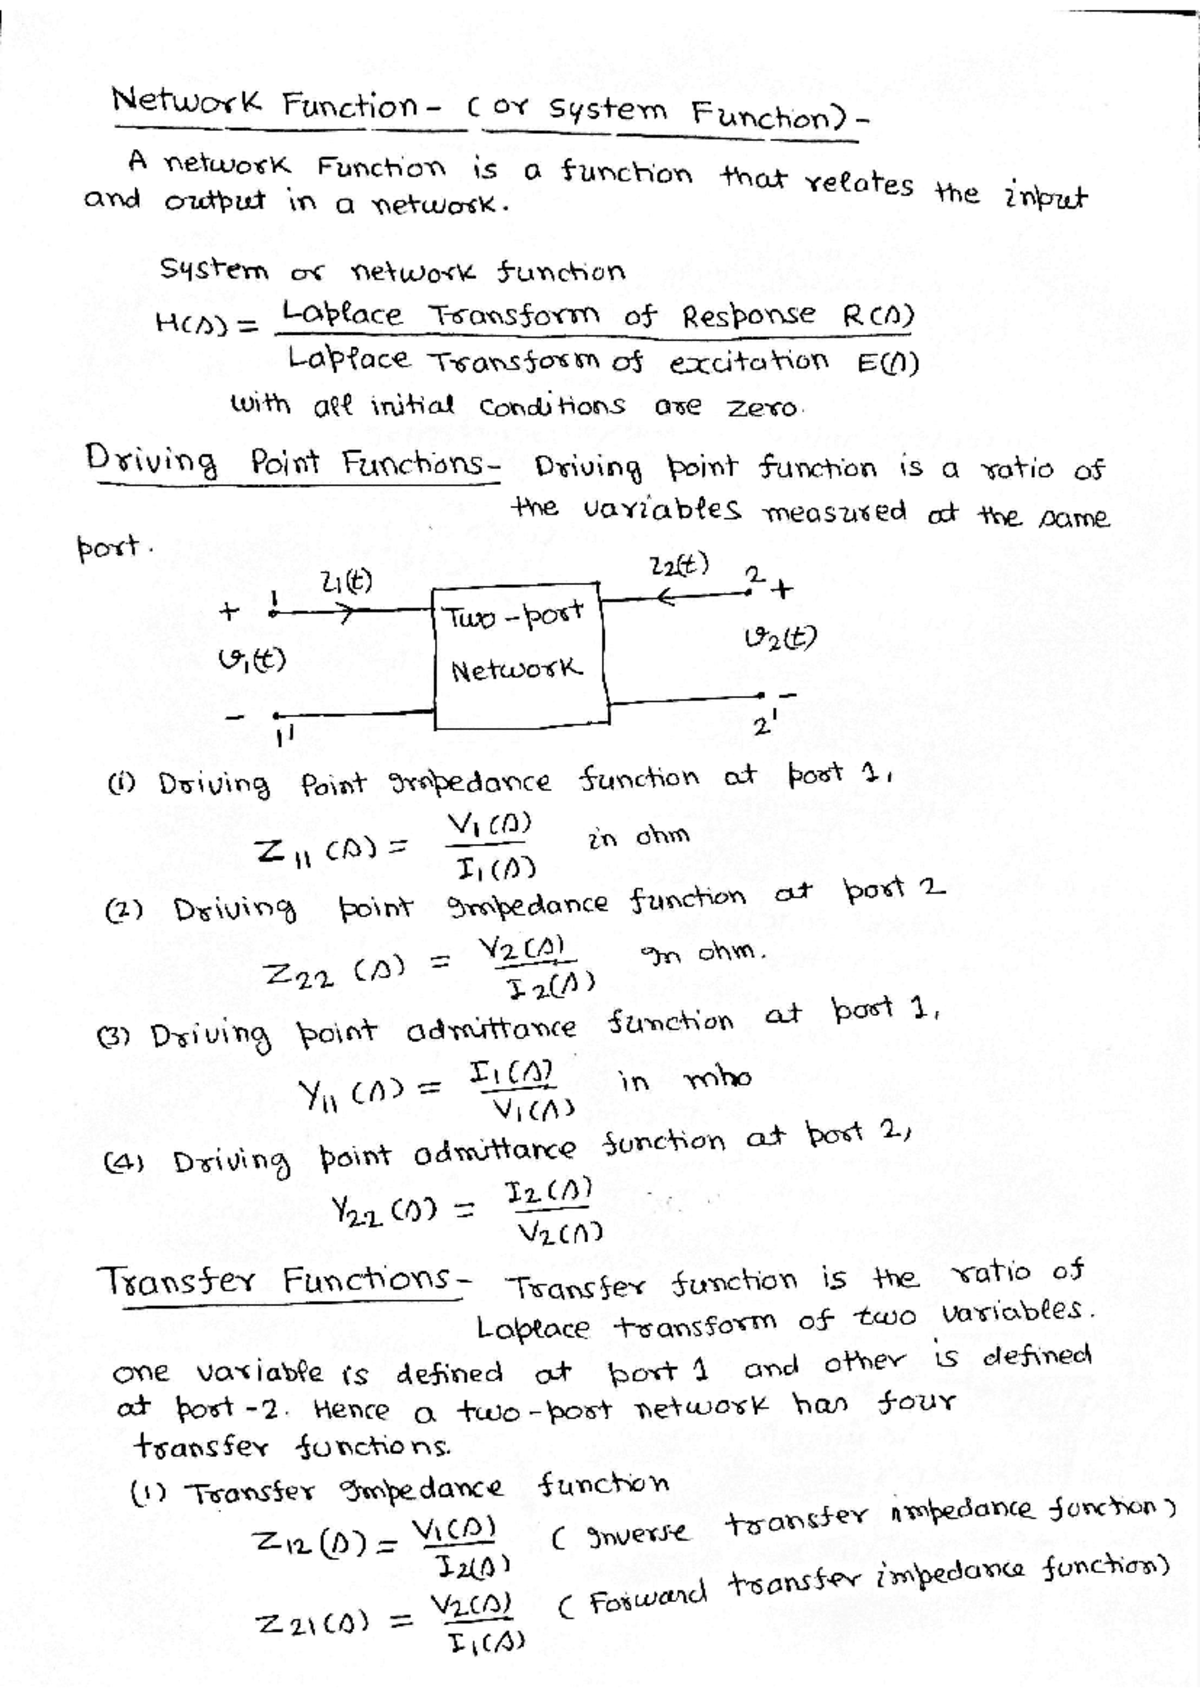 Network Function - (or System Function) -
A network Function is a function that relates the input
and output in a network.
System or network function
H(s) = Laplace Transform of Response R(s)
Laplace Transform of excitation E(s)
with all initial conditions are zero.
Driving Point Functions - Driving point function is a ratio of
the variables measured at the same
port.
i1(t) i2(t)
+ 1 Two-port 2 +
v1(t) Network v2(t)
- 1' 2' -
(i) Driving Point Impedance function at port 1,
Z11(s) = V1(s) / I1(s) in ohm
(2) Driving point Impedance function at port 2
Z22(s) = V2(s) / I2(s) In ohm.
(3) Driving point admittance function at port 1,
Y11(s) = I1(s) / V1(s) in mho
(4) Driving point admittance function at port 2,
Y22(s) = I2(s) / V2(s)
Transfer Functions - Transfer function is the ratio of
Laplace transform of two variables.
one variable is defined at port 1 and other is defined
at port-2. Hence a two-port network has four
transfer functions.
(1) Transfer Impedance function
Z12(s) = V1(s) / I2(s) (Inverse transfer impedance function)
Z21(s) = V2(s) / I1(s) (Forward transfer impedance function)